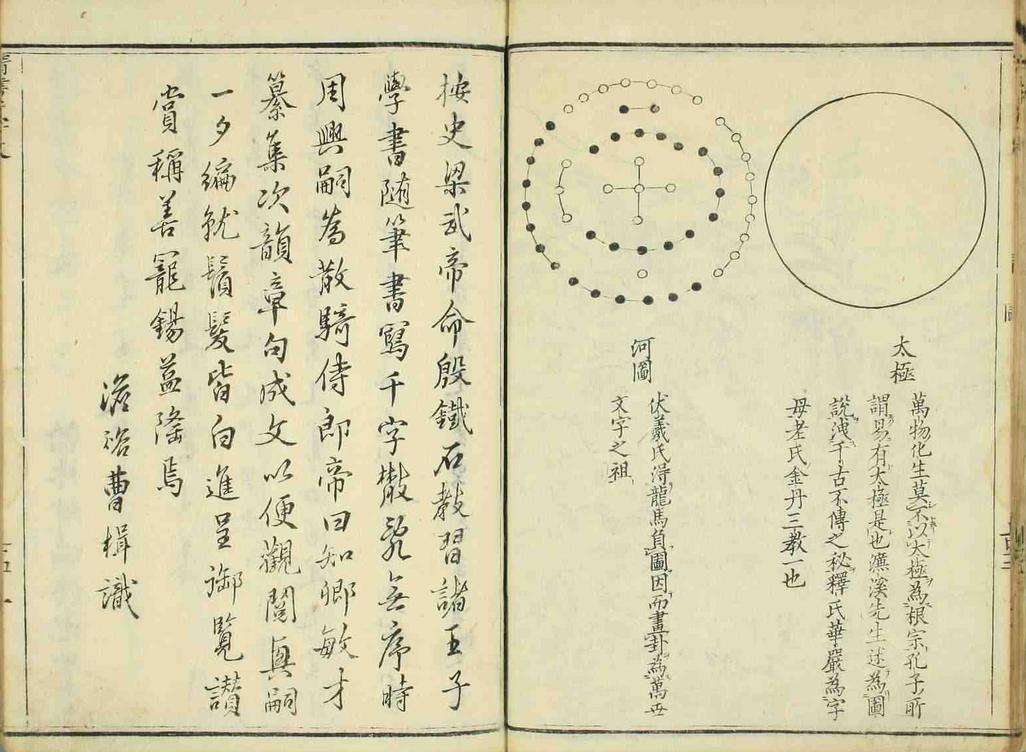 太極
萬物化生莫不以太極為根宗孔子所
謂易有太極是也濂溪先生述為圖
說洩千古不傳之秘釋氏華嚴為字
母老氏金丹三教一也
河圖
伏羲氏得龍馬負圖因而畫卦為萬世
文字之祖
按史梁武帝命殷鐵石教習諸王子
學書隨筆書寫千字散亂無序時
周興嗣為散騎侍郎帝曰知卿敏才
纂集次韻章句成文以便觀閱興嗣
一夕編就鬚髮皆白進呈御覽讚
賞稱善寵錫益隆焉
曹楫識